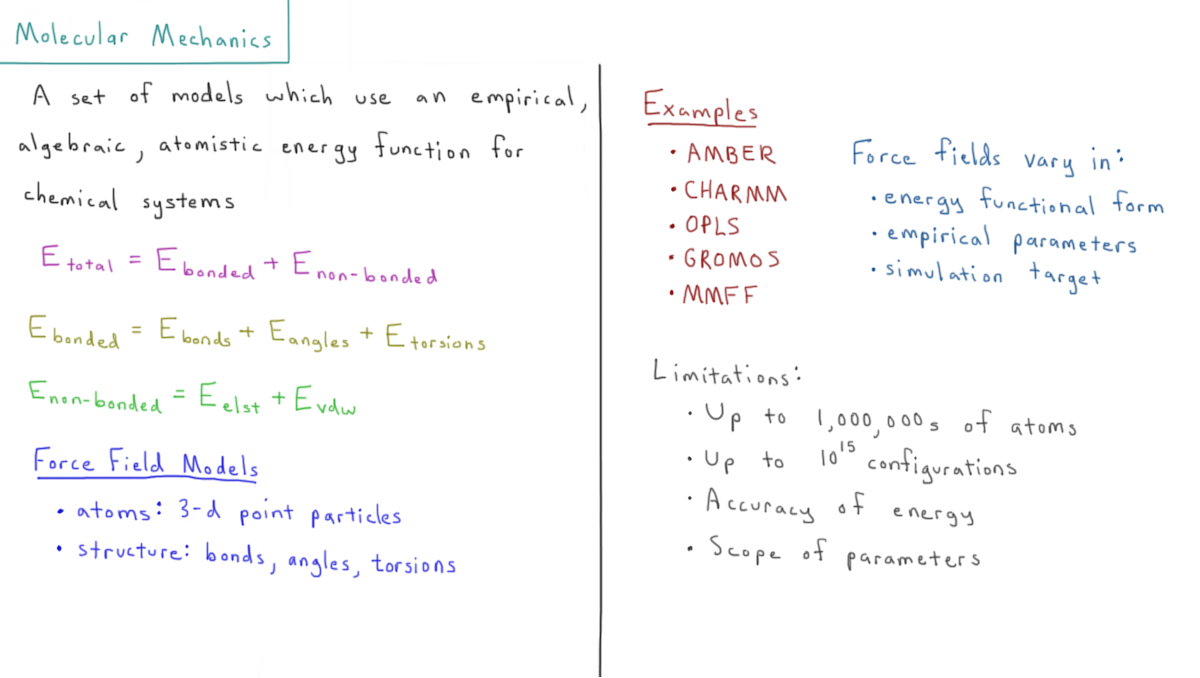 Molecular Mechanics
A set of models which use an empirical,
algebraic, atomistic energy function for
chemical systems
E total = E bonded + E non-bonded
E bonded = E bonds + E angles + E torsions
E non-bonded = E elst + E vdw
Force Field Models
• atoms: 3-d point particles
• structure: bonds, angles, torsions
Examples
• AMBER
• CHARMM
• OPLS
• GROMOS
• MMFF
Force fields vary in:
• energy functional form
• empirical parameters
• simulation target
Limitations:
• Up to 1,000,000s of atoms
• Up to 10¹⁵ configurations
• Accuracy of energy
• Scope of parameters